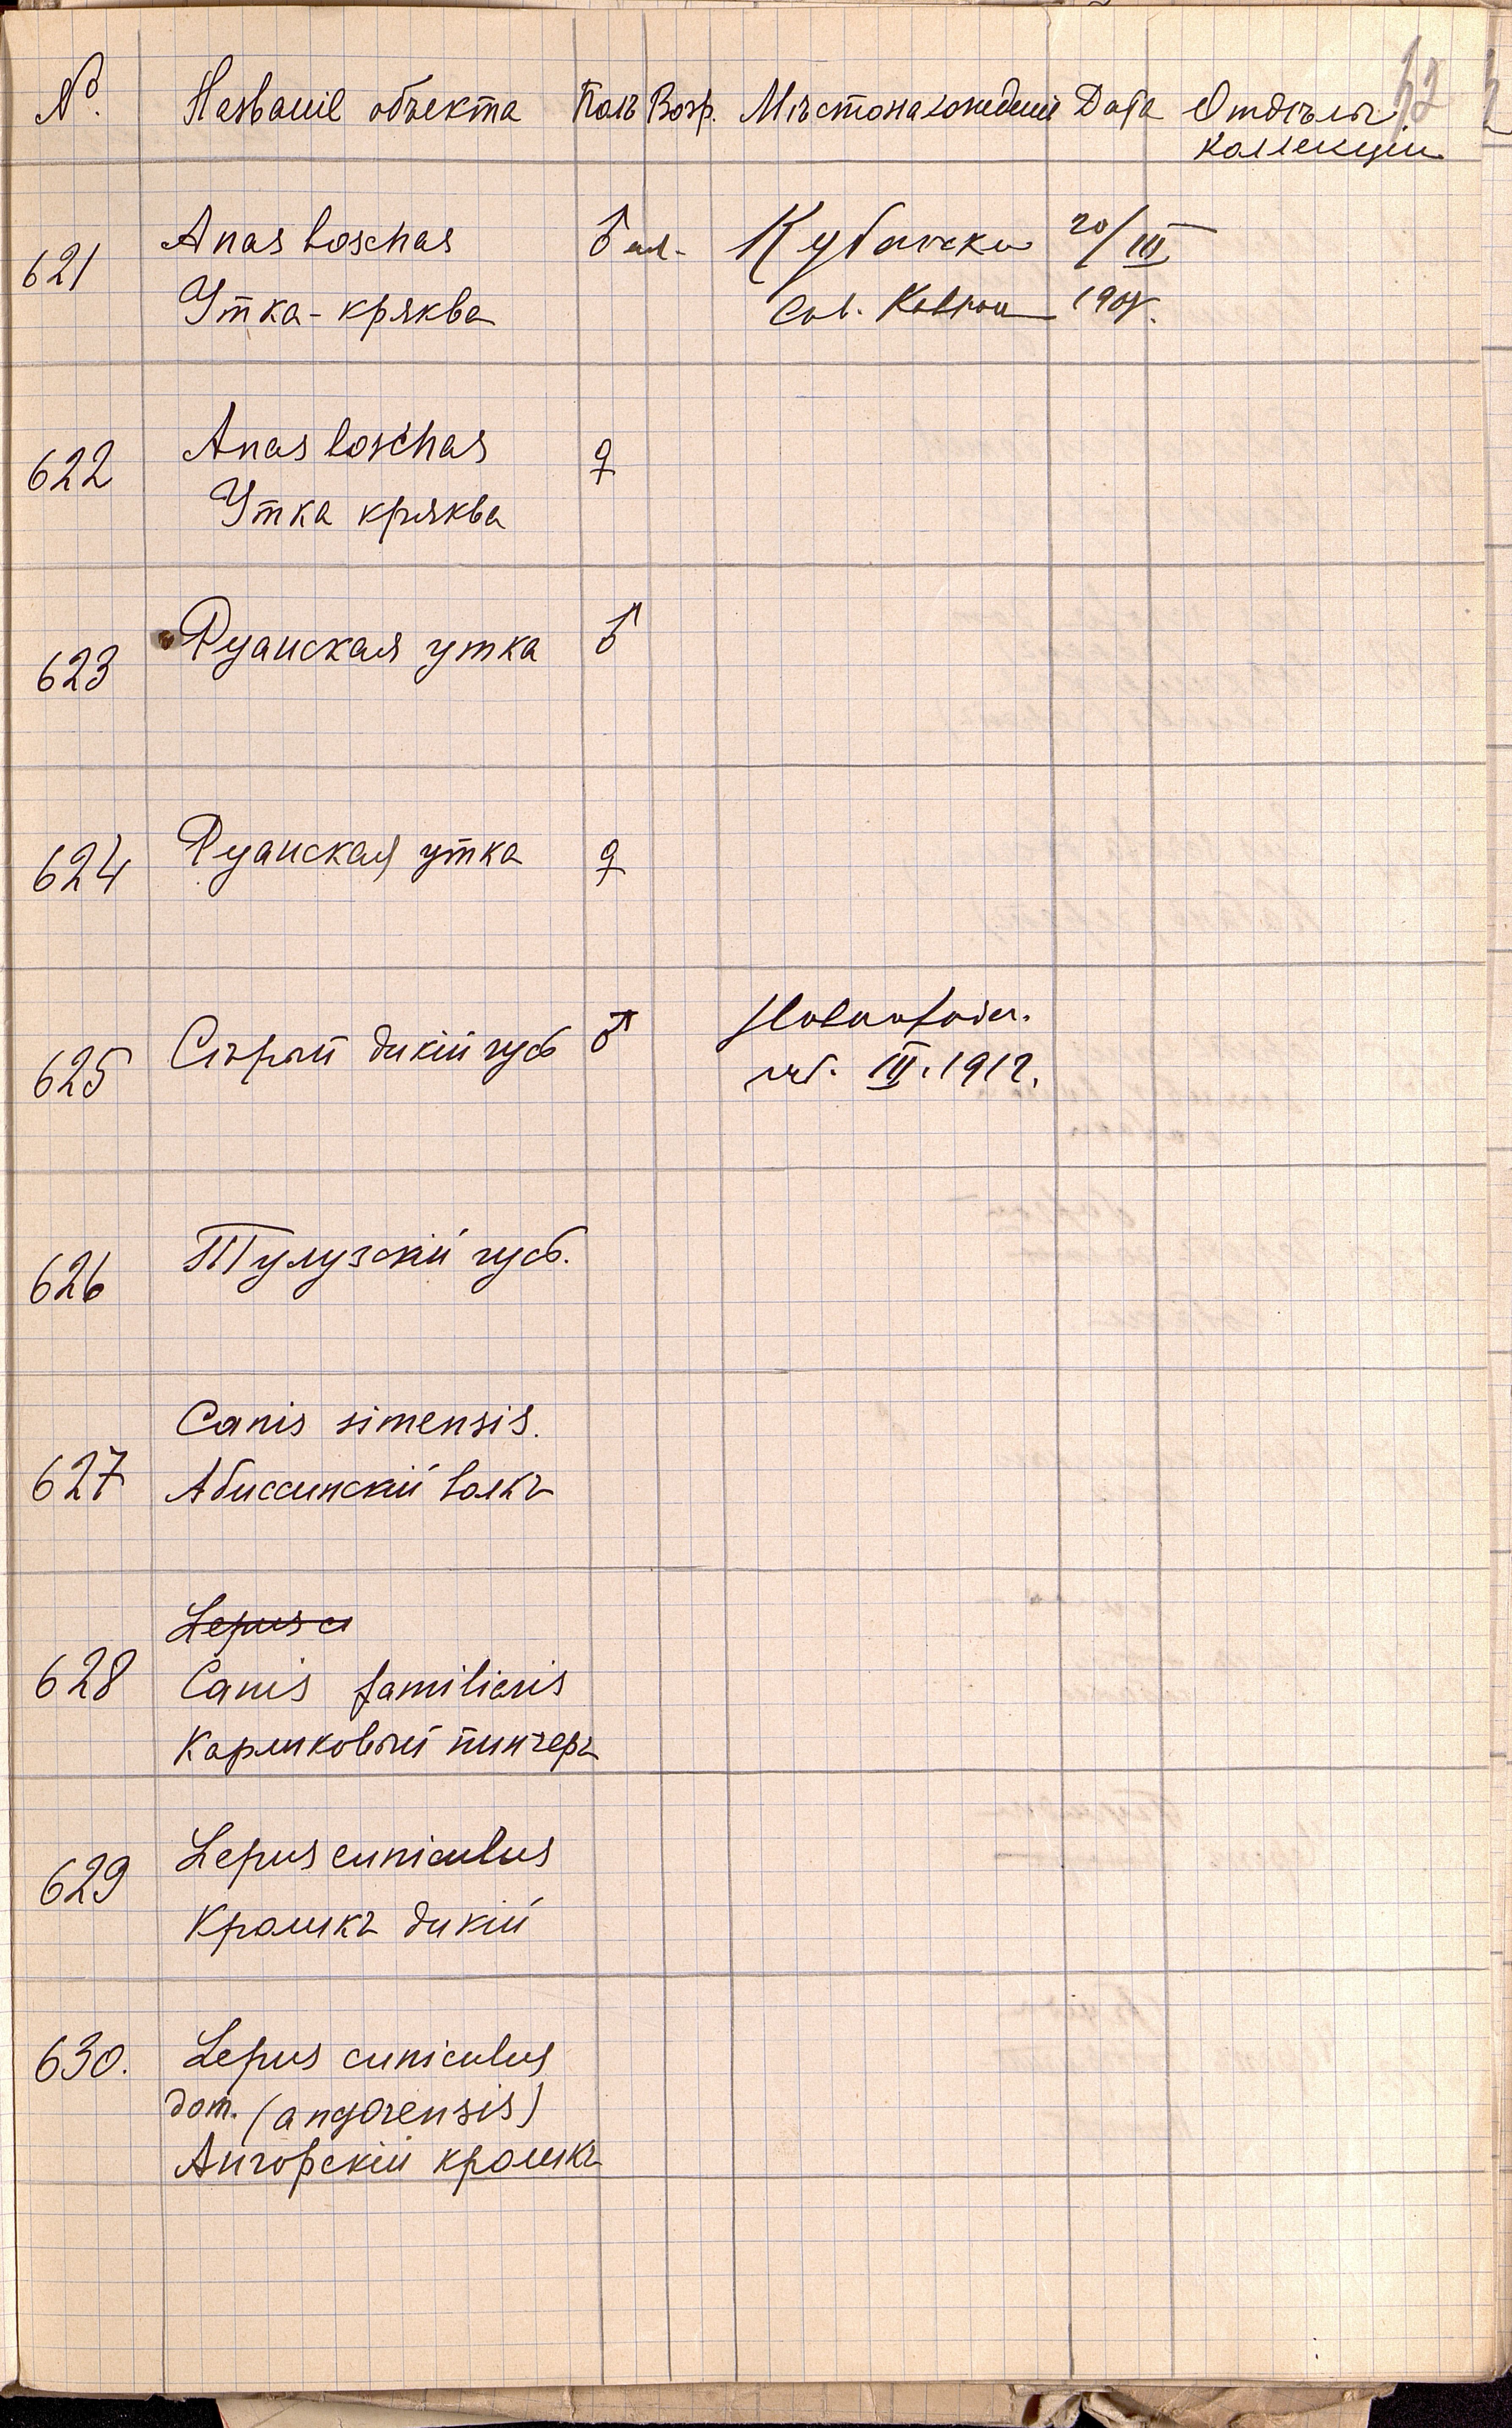 №. Названіе объекта Полъ Возр. Мѣстонахожденіе Дата Отдѣлъ
коллекціи
621 Anas boschas ♂ 20/III
Утка-кряква 190
622 Anas boschas ♀
Утка кряква
623 Руанская утка ♂
624 Руанская утка ♀
625 Сѣрый дикій гусь ♂
III. 1912.
626 Тулузскій гусь.
627 Canis simensis.
Абиссинскій волкъ
Lepus c
628 Canis familiaris
Карликовый пинчеръ
629 Lepus cuniculus
Кроликъ дикій
630. Lepus cuniculus
dom. (angorensis)
Ангорскій кроликъ